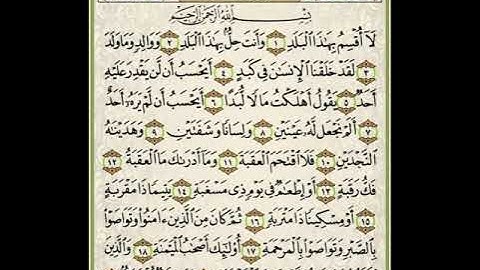 بِسْمِ ٱللَّهِ ٱلرَّحْمَٰنِ ٱلرَّحِيمِ
لَآ أُقْسِمُ بِهَٰذَا ٱلْبَلَدِ ١ وَأَنتَ حِلٌّۢ بِهَٰذَا ٱلْبَلَدِ ٢ وَوَالِدٍ وَمَا وَلَدَ
٣ لَقَدْ خَلَقْنَا ٱلْإِنسَٰنَ فِى كَبَدٍ ٤ أَيَحْسَبُ أَن لَّن يَقْدِرَ عَلَيْهِ
أَحَدٌ ٥ يَقُولُ أَهْلَكْتُ مَالًا لُّبَدًا ٦ أَيَحْسَبُ أَن لَّمْ يَرَهُۥٓ أَحَدٌ
٧ أَلَمْ نَجْعَل لَّهُۥ عَيْنَيْنِ ٨ وَلِسَانًا وَشَفَتَيْنِ ٩ وَهَدَيْنَٰهُ
ٱلنَّجْدَيْنِ ١٠ فَلَا ٱقْتَحَمَ ٱلْعَقَبَةَ ١١ وَمَآ أَدْرَىٰكَ مَا ٱلْعَقَبَةُ ١٢
فَكُّ رَقَبَةٍ ١٣ أَوْ إِطْعَٰمٌ فِى يَوْمٍ ذِى مَسْغَبَةٍ ١٤ يَتِيمًا ذَا مَقْرَبَةٍ
١٥ أَوْ مِسْكِينًا ذَا مَتْرَبَةٍ ١٦ ثُمَّ كَانَ مِنَ ٱلَّذِينَ ءَامَنُوا۟ وَتَوَاصَوْا۟
بِٱلصَّبْرِ وَتَوَاصَوْا۟ بِٱلْمَرْحَمَةِ ١٧ أُو۟لَٰٓئِكَ أَصْحَٰبُ ٱلْمَيْمَنَةِ ١٨ وَٱلَّذِينَ